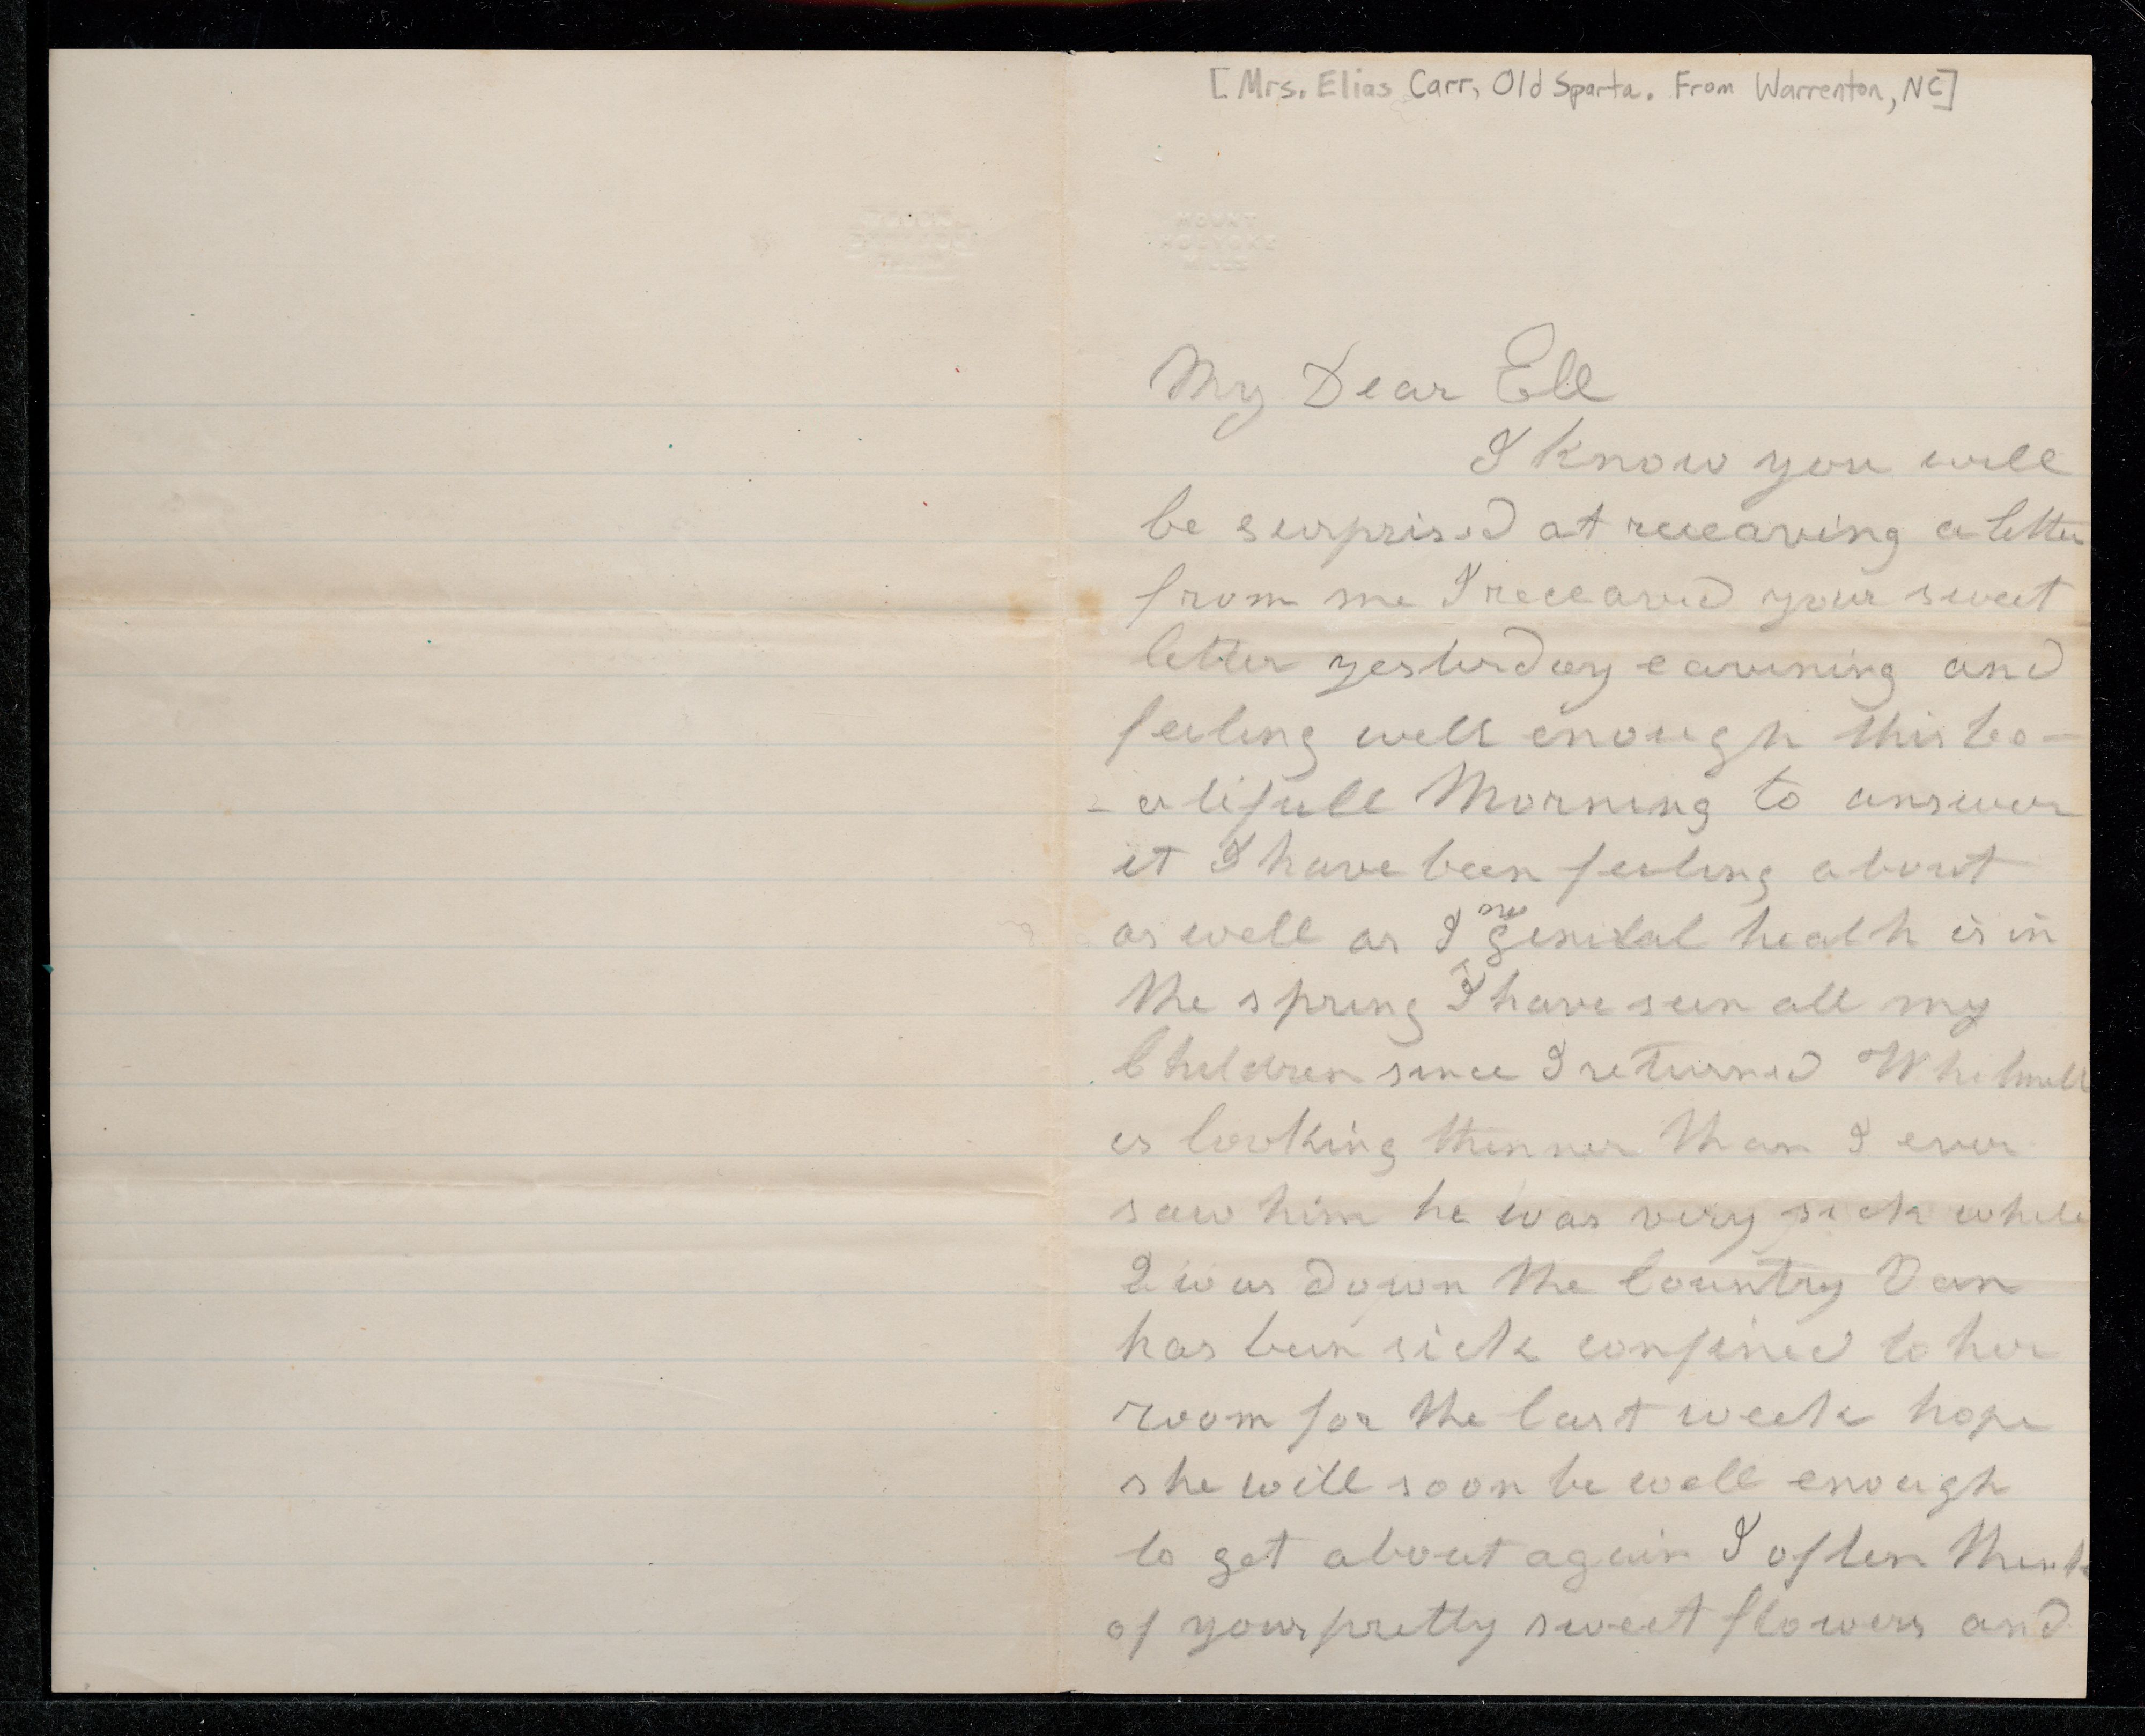 [Mrs. Elias Carr, Old Sparta. From Warrenton, NC]
MOUNT
HOLYOKE
MILLS
My Dear Ell
I know you will
be surprised at receaving a letter
from me I receaved your sweet
letter yesterday eavening and
feeling well enough this bo-
-a tifull Morning to answer
it I have been feeling about
as well as I my genial health is in
the spring I have seen all my
Children since I returned
is looking thinner than I ever
saw him he was very sick while
I was down the Country Dan
has been sick confined to her
room for the last week hope
she will soon be well enough
to get about again I often think
of your pretty sweet flowers and